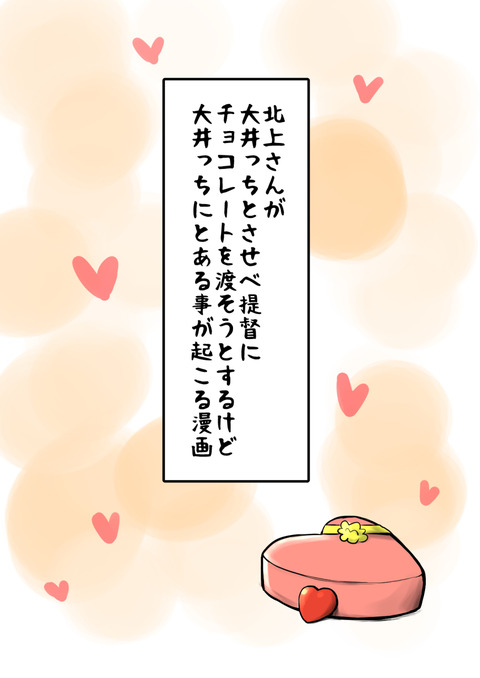 北上さんが
大井っちとさせべ提督に
チョコレートを渡そうとするけど
大井っちにとある事が起こる漫画